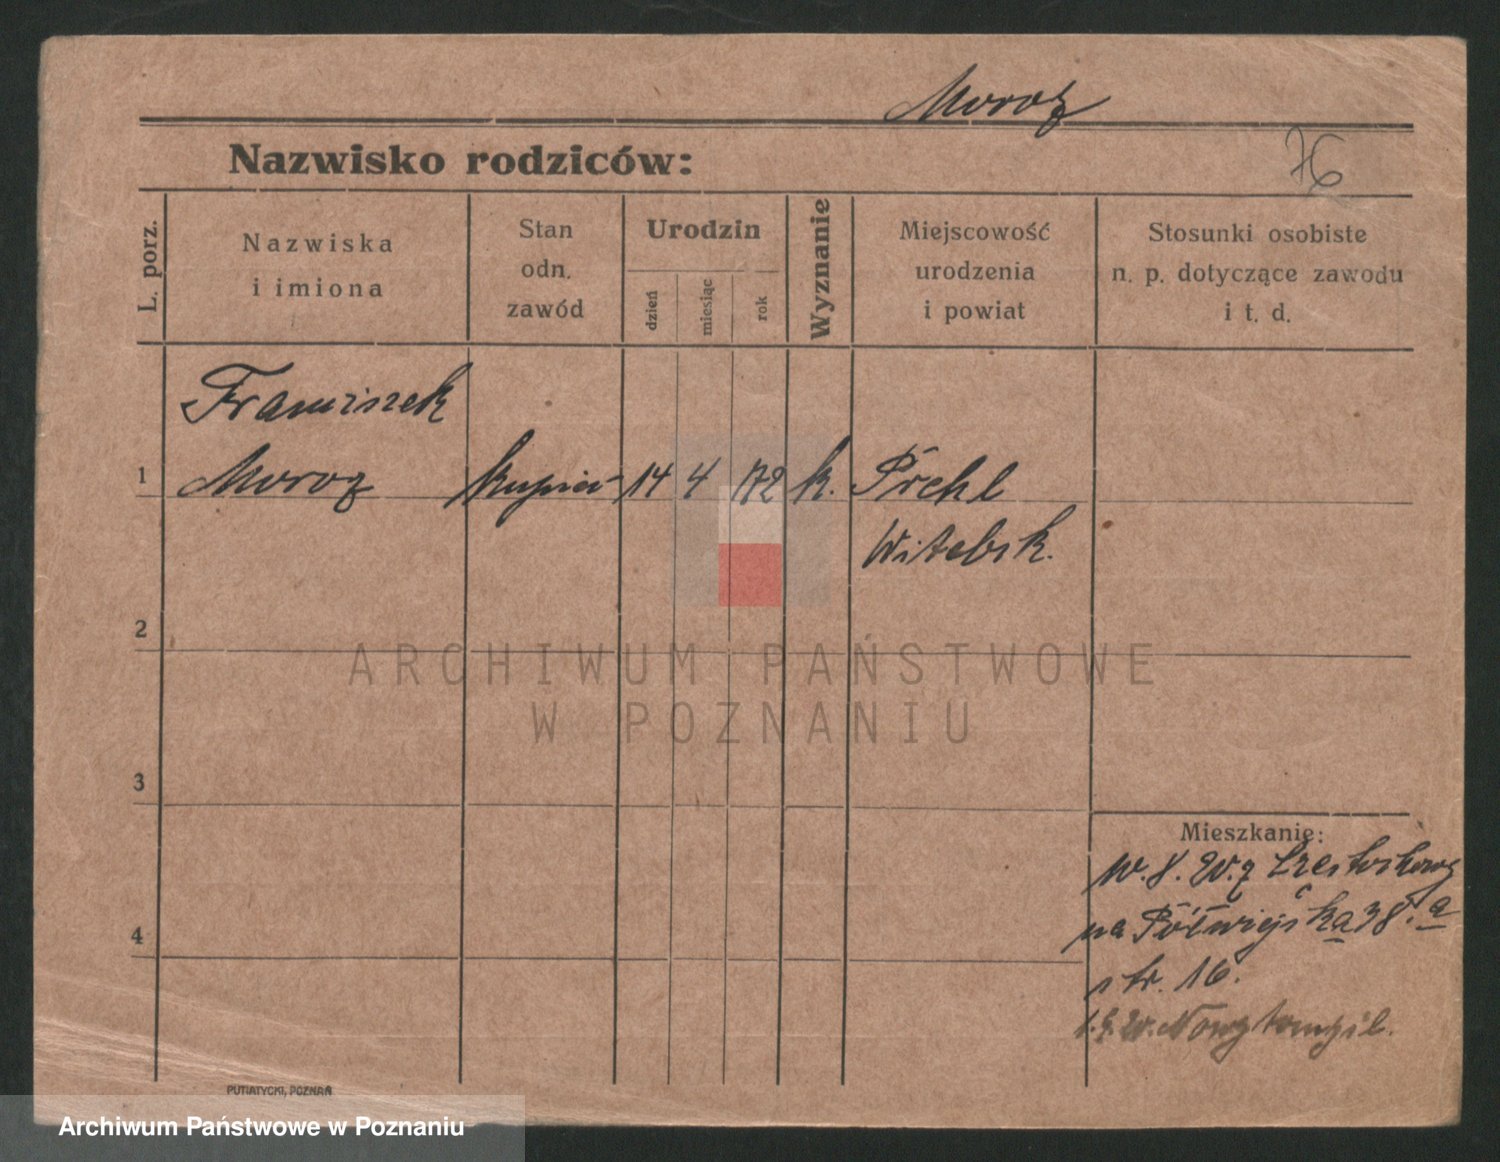 Moroz
Nazwisko rodziców:
76
L. porz.
Nazwiska
i imiona
Stan
odn.
zawód
Urodzin
dzień
miesiąc
rok
Wyznanie
Miejscowość
urodzenia
i powiat
Stosunki osobiste
n. p. dotyczące zawodu
i t. d.
Franciszek
1 Moroz kupiec 14 4 72 k.
Witebsk.
2
3
4
Mieszkanie:
na Półwiejska 38.a
str. 16.
Nowytomyśl.
PUTIATYCKI, POZNAŃ
ARCHIWUM PAŃSTWOWE
W POZNANIU
Archiwum Państwowe w Poznaniu